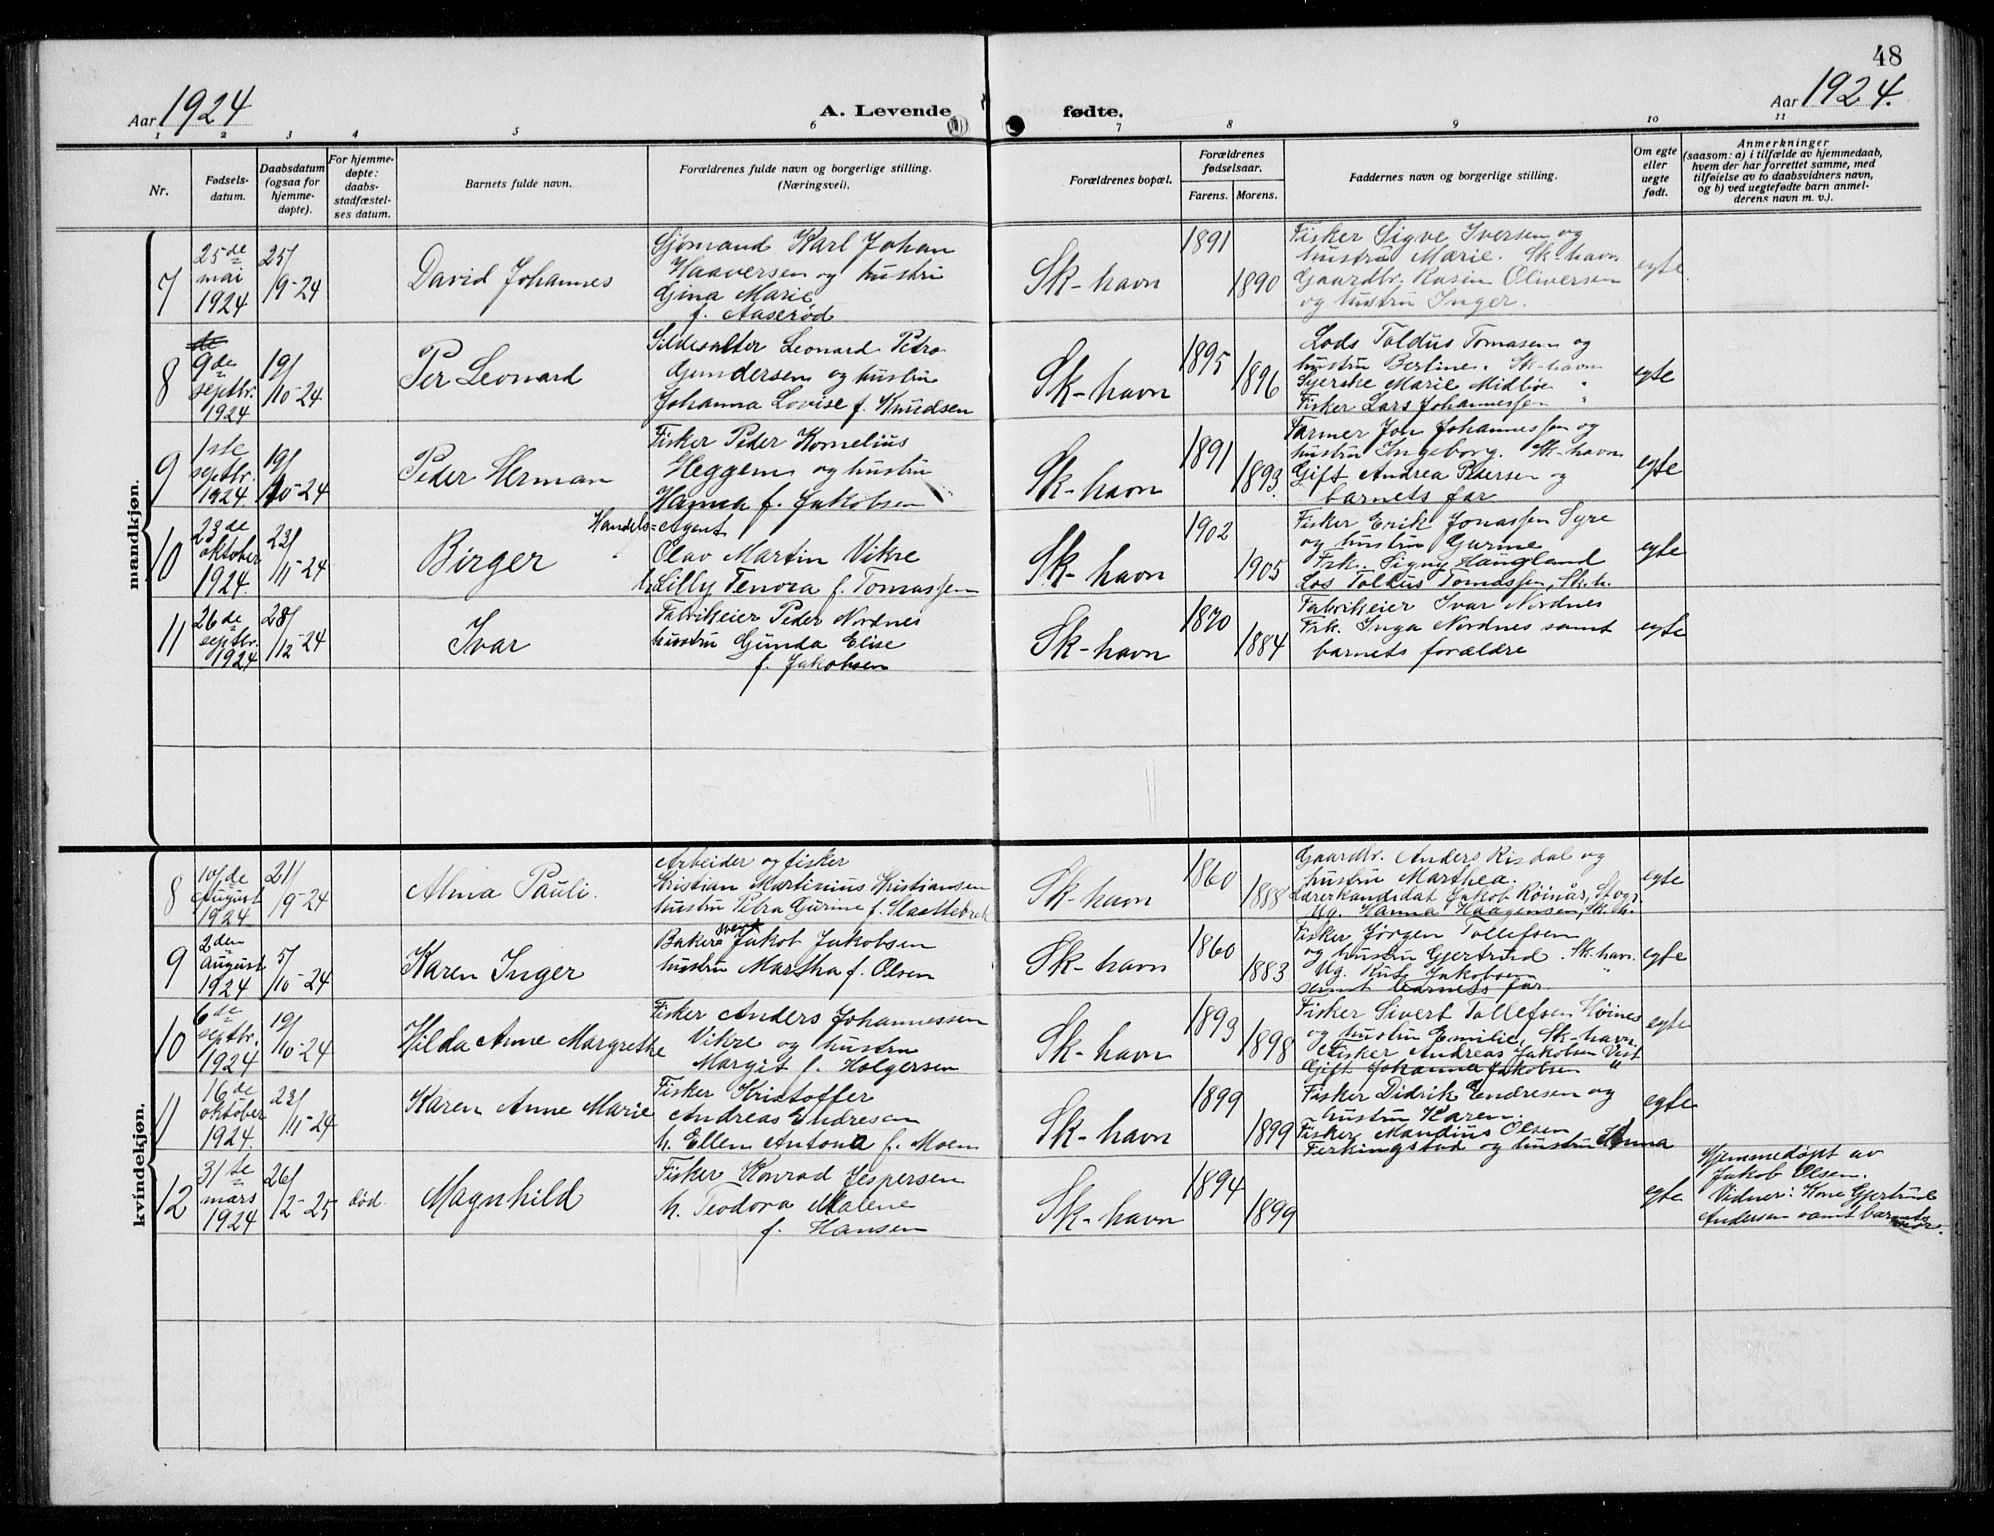 48
Aar 1924
A. Levende fødte.
Aar 1924.
1 2 3 4 5 6 7 8 9 10 11
Nr.
Fødsels-
datum.
Daabsdatum
(ogsaa for
hjemme-
døpte).
For hjemme-
døpte:
daabs-
stadfæstel-
ses datum.
Barnets fulde navn.
Forældrenes fulde navn og borgerlige stilling.
(Næringsvei).
Forældrenes bopæl.
Forældrenes
fødselsaar.
Farens. Morens.
Faddernes navn og borgerlige stilling.
Om egte
eller
uegte
født.
Anmerkninger
(saasom: a) i tilfælde av hjemmedaab,
hvem der har forrettet samme, med
tilføielse av to daabsvidners navn,
og b) ved uegtefødte barn anmel-
derens navn m. v.).
mandkjøn.
7
25de
mai
1924
25/
9-24
David Johannes
Sjømand Karl Johan
Haaversen og hustru
Gina Marie
f. Aaserød
Sk-havn
1891
1890
Fisker Sigve Iversen og
hustru Marie. Sk-havn
Gaardbr. Rasin Oliversen
og hustru Inger.
egte
8
9de
septbr.
1924
19/
10-24
Per Leonard
Sildesalter Leonard Petro
Gundersen og hustru
Johanna Lovise f. Knudsen
Sk-havn
1895
1896
Lods Toldus Tomasen og
hustru Berline. Sk-havn
Syerske Marie Midbøe "
Fisker Lars Johannessen "
egte
9
1ste
septbr.
1924
19/
10-24
Peder Herman
Fisker Peder Kornelius
Heggem og hustru
Hanna f. Jakobsen
Sk-havn
1891
1893
Farmer Jon Johannessen og
hustru Ingeborg. Sk-havn
Gift Andrea Pedersen og
barnets far
egte
10
23de
oktober
1924.
23/
11-24
Birger
Handels=Agent
Olav Martin Vikre
h. Lilly Tenora f. Tomassen
Sk-havn
1902
1905
Fisker Erik Jonassen Syre
og hustru Gurine
Frk. Signy Haugland
Los Toldus Tomassen, Sk.h.
egte
11
26de
septbr.
1924
28/
12-24
Ivar
Fabrikeier Peder Nordnes
hustru Gunda Elise
f. Jakobsen
Sk-havn
1870
1884
Fabrikeier Ivar Nordnes
Frk. Inga Nordnes samt
barnets forældre
egte
kvindekjøn.
8
10/de
August
1924
21/
9-24
Alma Pauli.
Arbeider og fisker
Kristian Martinius Kristiansen
hustru Petra Gurine f. Slaattebrek
Sk-havn
1860
1888
Gaardbr. Anders Risdal og
hustru Marthea.
Lærerkandidat Jakob Røinås,
Ug. Hanna Haagensen, Sk.h.
egte
9
2den
august
1924
5/
10-24
Karen Inger
Baker Jakob Jakobsen
hustru Martha f. Olsen
Sk-havn
1860
1883
Fisker Jørgen Tollefsen
og hustru Gjertrud. Sk-havn.
Ug. Rut Jakobsen "
samt barnets far
egte
10
6de
septbr.
1924
19/
10-24
Hilda Anne Margrethe
Fisker Anders Johannessen
Vikre og hustru
Margit f. Holgersen
Sk-havn
1893
1898
Fisker Sivert Tollefsen Høines
og hustru Emilie, Sk-havn.
Fisker Andreas Jakobsen Vest
Gift Johanne Jakobsen "
egte
11
16de
oktober
1924.
23/
11-24
Karen Anne Marie
Fisker Kristoffer
Andreas Endresen
h. Ellen Antona f. Moen
Sk-havn
1899
1899
Fisker Didrik Endresen og
hustru Karen.
Fisker Mandius Olsen
Ferkingstad og hustru Anna
egte
12
31/te
mars
1924
26/
12-25
død.
Magnhild
Fisker Konrad Jespersen
h. Teodora Malene
f. Hansen
Sk-havn
1894
1899
egte
Hjemmedøpt av
Jakob Olsen.
Vidner: Kone Gjertrud
Andersen samt barnets
mor.